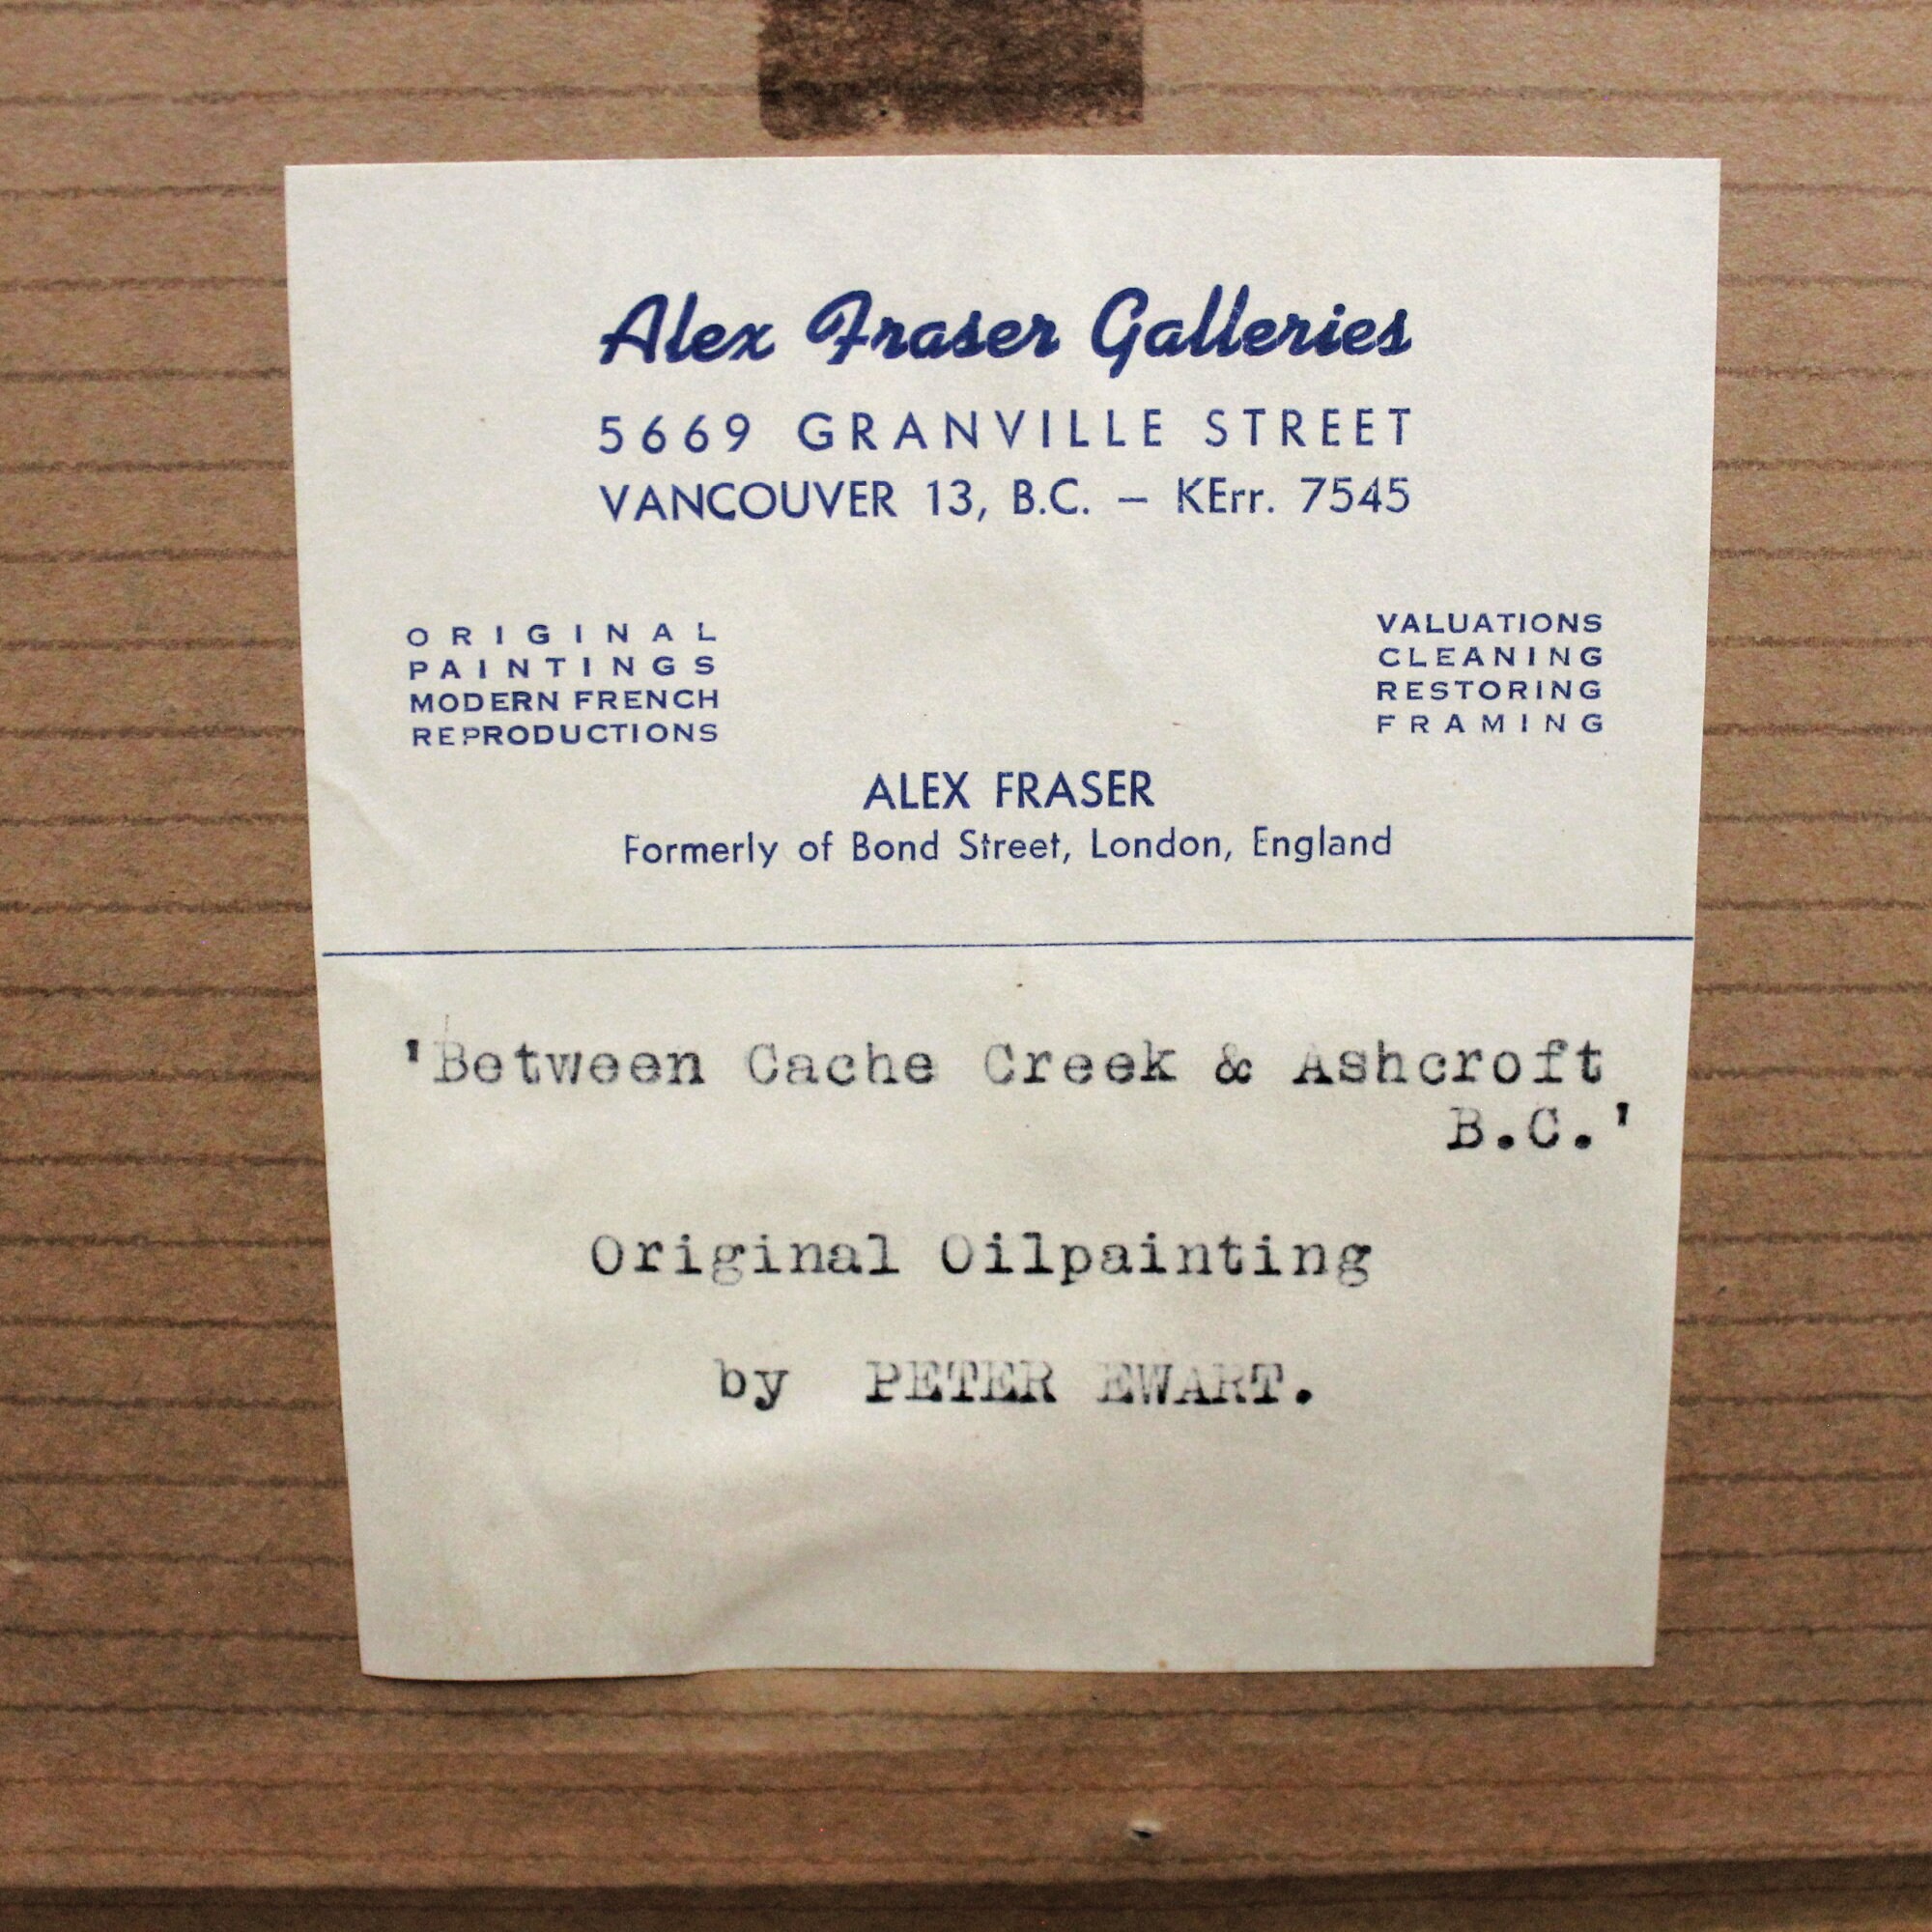 Alex Fraser Galleries
5669 GRANVILLE STREET
VANCOUVER 13, B.C. – KErr. 7545
ORIGINAL
PAINTINGS
MODERN FRENCH
REPRODUCTIONS
VALUATIONS
CLEANING
RESTORING
FRAMING
ALEX FRASER
Formerly of Bond Street, London, England
'Between Cache Creek & Ashcroft
B.C.'
Original Oilpainting
by PETER EWART.